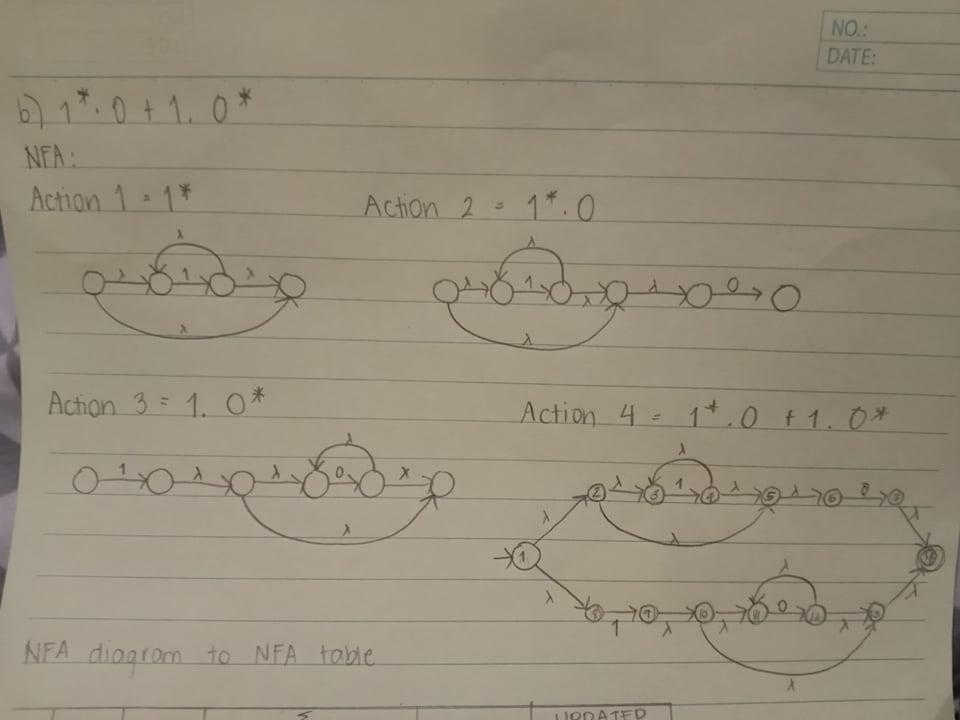 NO.:
DATE:
b) 1*. 0 + 1. 0*
NFA:
Action 1 = 1*
Action 2 = 1*. 0
λ
λ 1 λ
λ
λ
λ 1 λ λ 0
λ
Action 3 = 1. 0*
Action 4 = 1*. 0 + 1. 0*
λ
1 λ λ 0 λ
λ
λ
2 λ 3 1 4 λ 5 λ 6 0 7
λ λ λ
1
λ λ λ
8 1 9 λ 10 λ 11 0 12 λ 13
λ
NFA diagram to NFA table
UPDATED